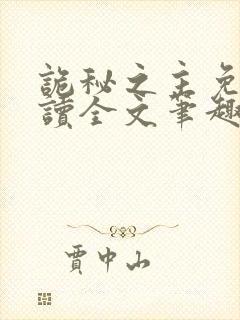 詭秘之主免
讀全文筆趣
賈中山